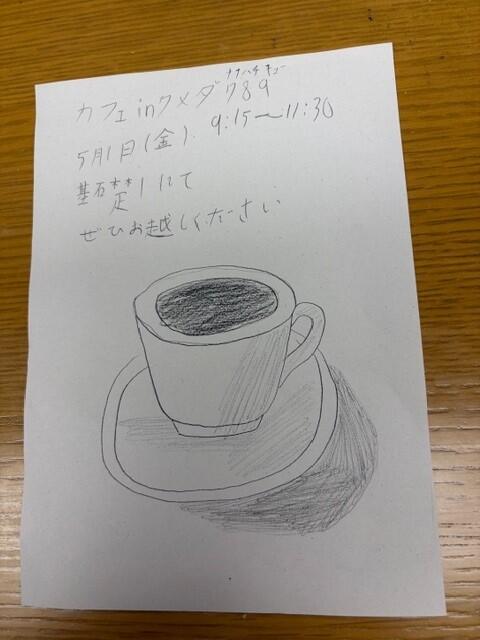 ナナハチキュー
カフェinクメダ789
5月1日(金). 9:15〜11:30
基礎1にて
ぜひお越しください